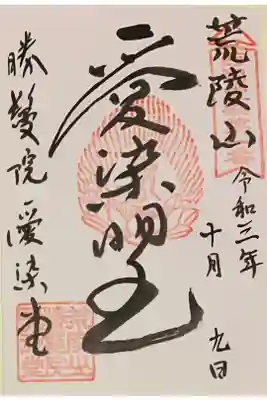 荒陵山
令和三年
十月 九日
愛染明王
勝鬘院 愛染堂